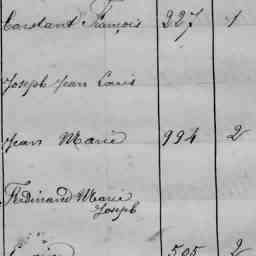 Constant François 227 1
Joseph Jean Louis
Jean Marie 994 2
Ferdinand Marie
Joseph
505 2